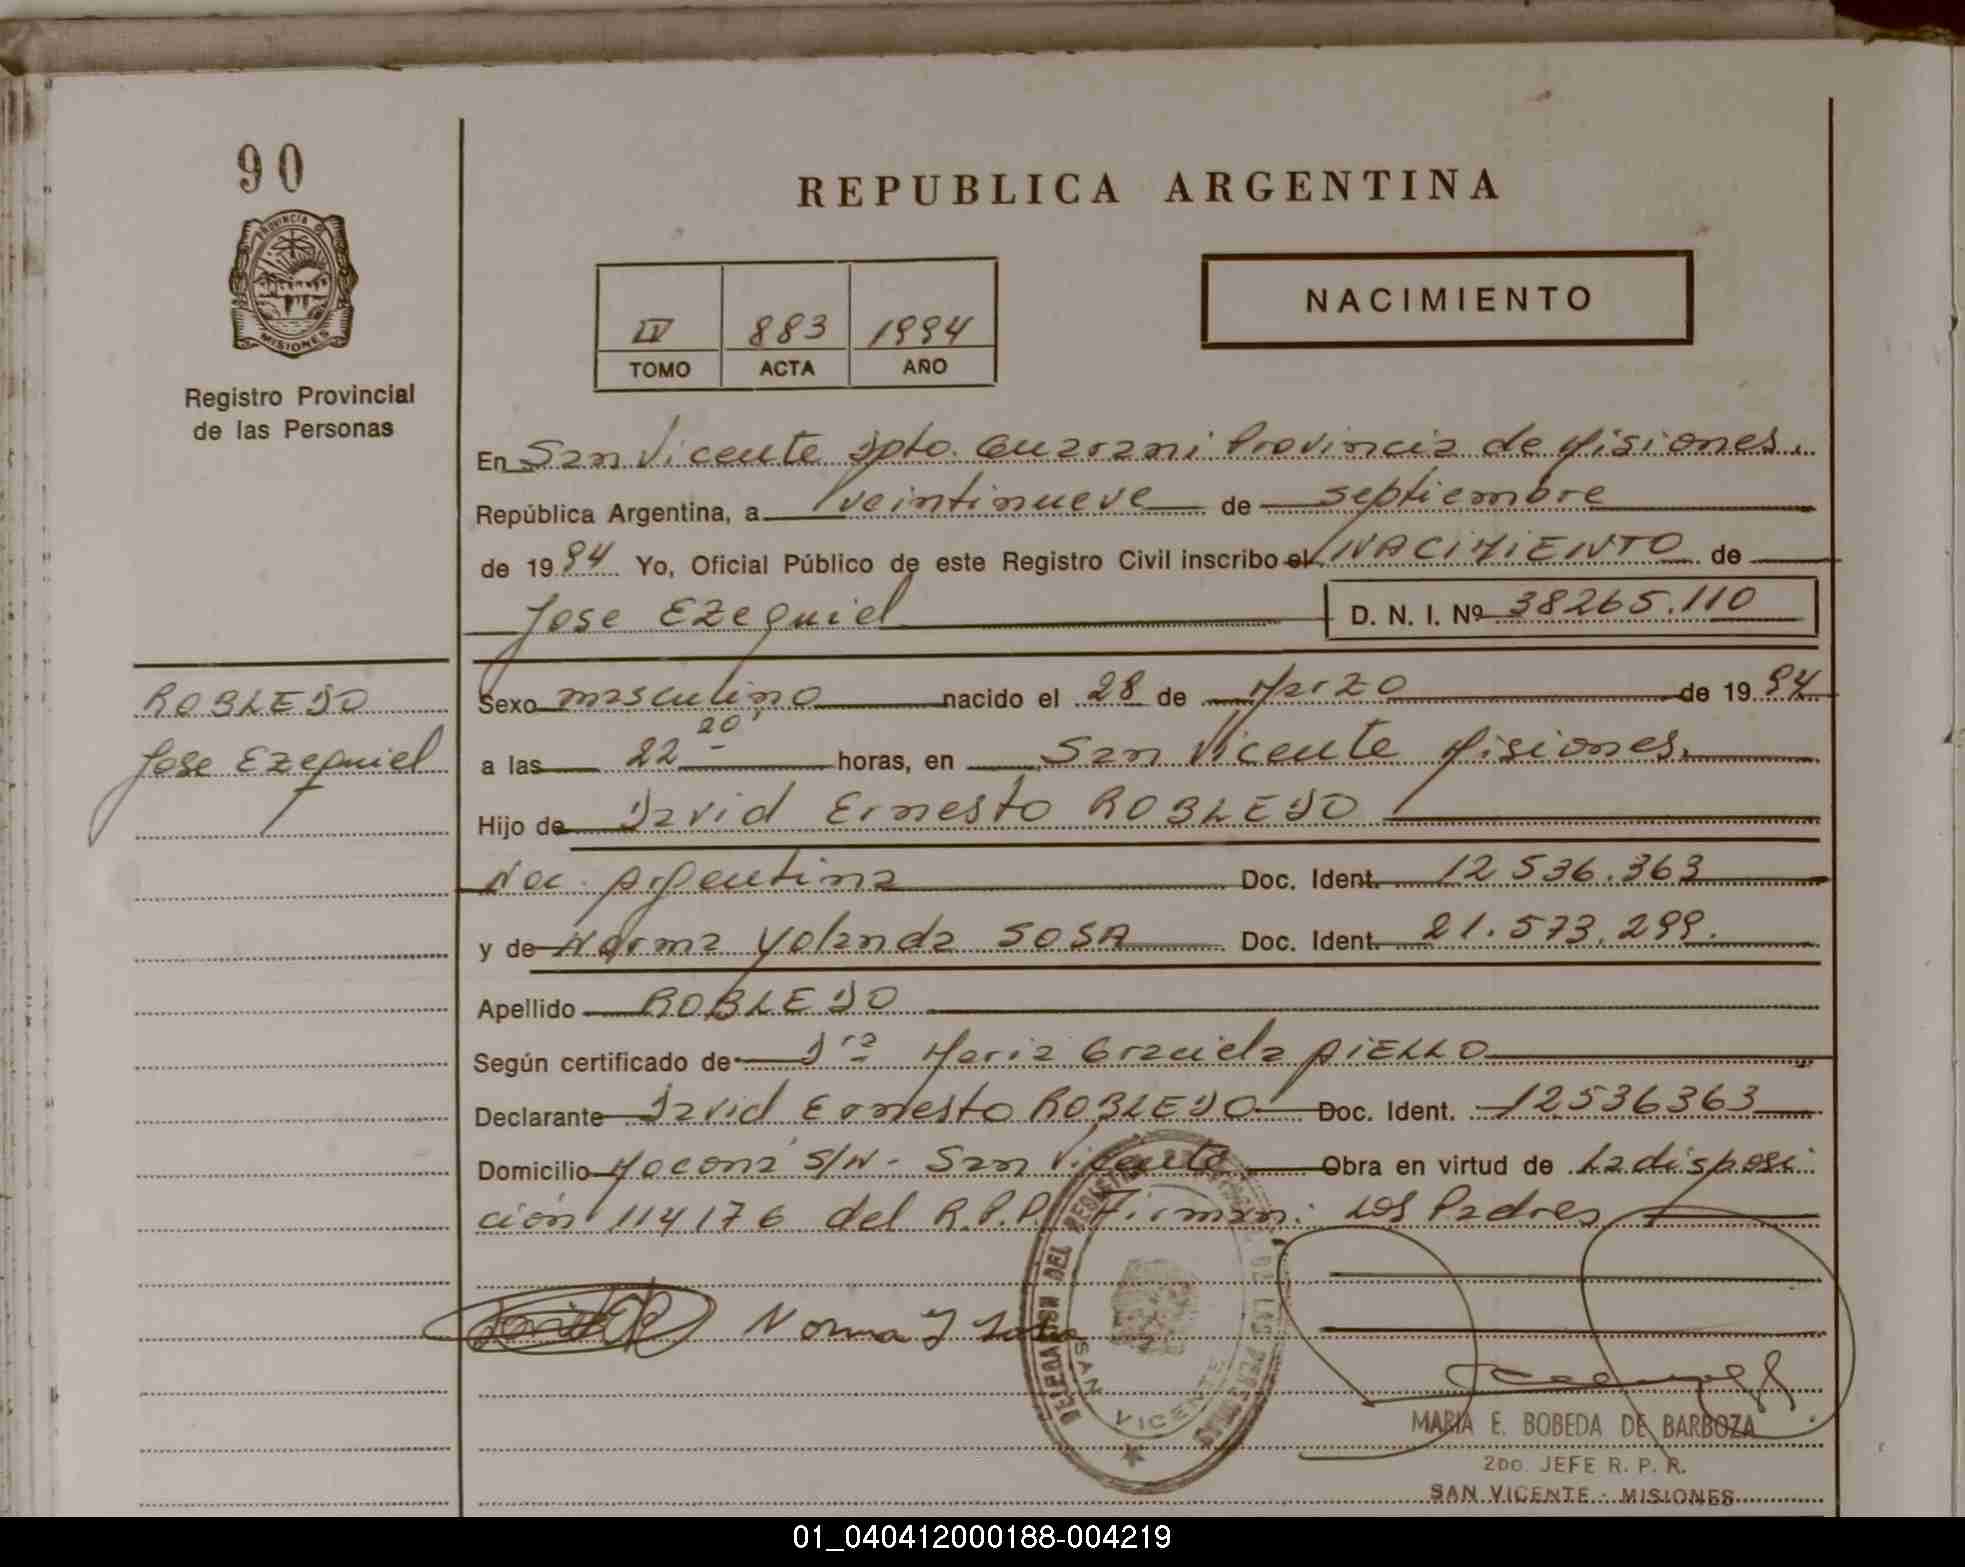 90
REPUBLICA ARGENTINA
PROVINCIA DE
MISIONES
Registro Provincial
de las Personas
NACIMIENTO
IV 883 1994
TOMO ACTA AÑO
En San Vicente Dpto. Guarani Provincia de Misiones.
República Argentina, a veintinueve de septiembre
de 1994 Yo, Oficial Público de este Registro Civil inscribo el NACIMIENTO de
Jose Ezequiel D. N. I. Nº 38265.110
ROBLEDO
Jose Ezequiel
Sexo masculino nacido el 28 de Marzo de 1994
a las 22 20' horas, en San Vicente Misiones.
Hijo de David Ernesto ROBLEDO
Nac. Argentina Doc. Ident. 12 536.363
y de Norma Yolanda SOSA Doc. Ident. 21.573.299.
Apellido ROBLEDO
Según certificado de Dra Maria Graciela AIELLO
Declarante David Ernesto ROBLEDO Doc. Ident. 12536363
Domicilio Mocona S/N - San Vicente Obra en virtud de La disposi
ción 114176 del R.P.P. Firman: los Padres
Norma Y Sosa
DELEGACION DEL REGISTRO PROVINCIAL DE LAS PERSONAS
SAN VICENTE
MARIA E. BOBEDA DE BARBOZA
2DO. JEFE R. P. R.
SAN VICENTE - MISIONES
01_040412000188-004219